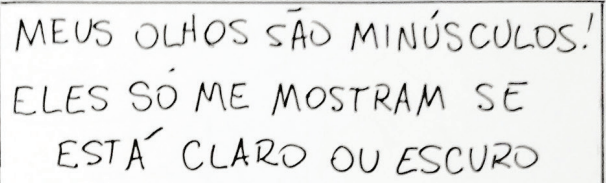 MEUS OLHOS SÃO MINÚSCULOS!
ELES SÓ ME MOSTRAM SE
ESTÁ CLARO OU ESCURO